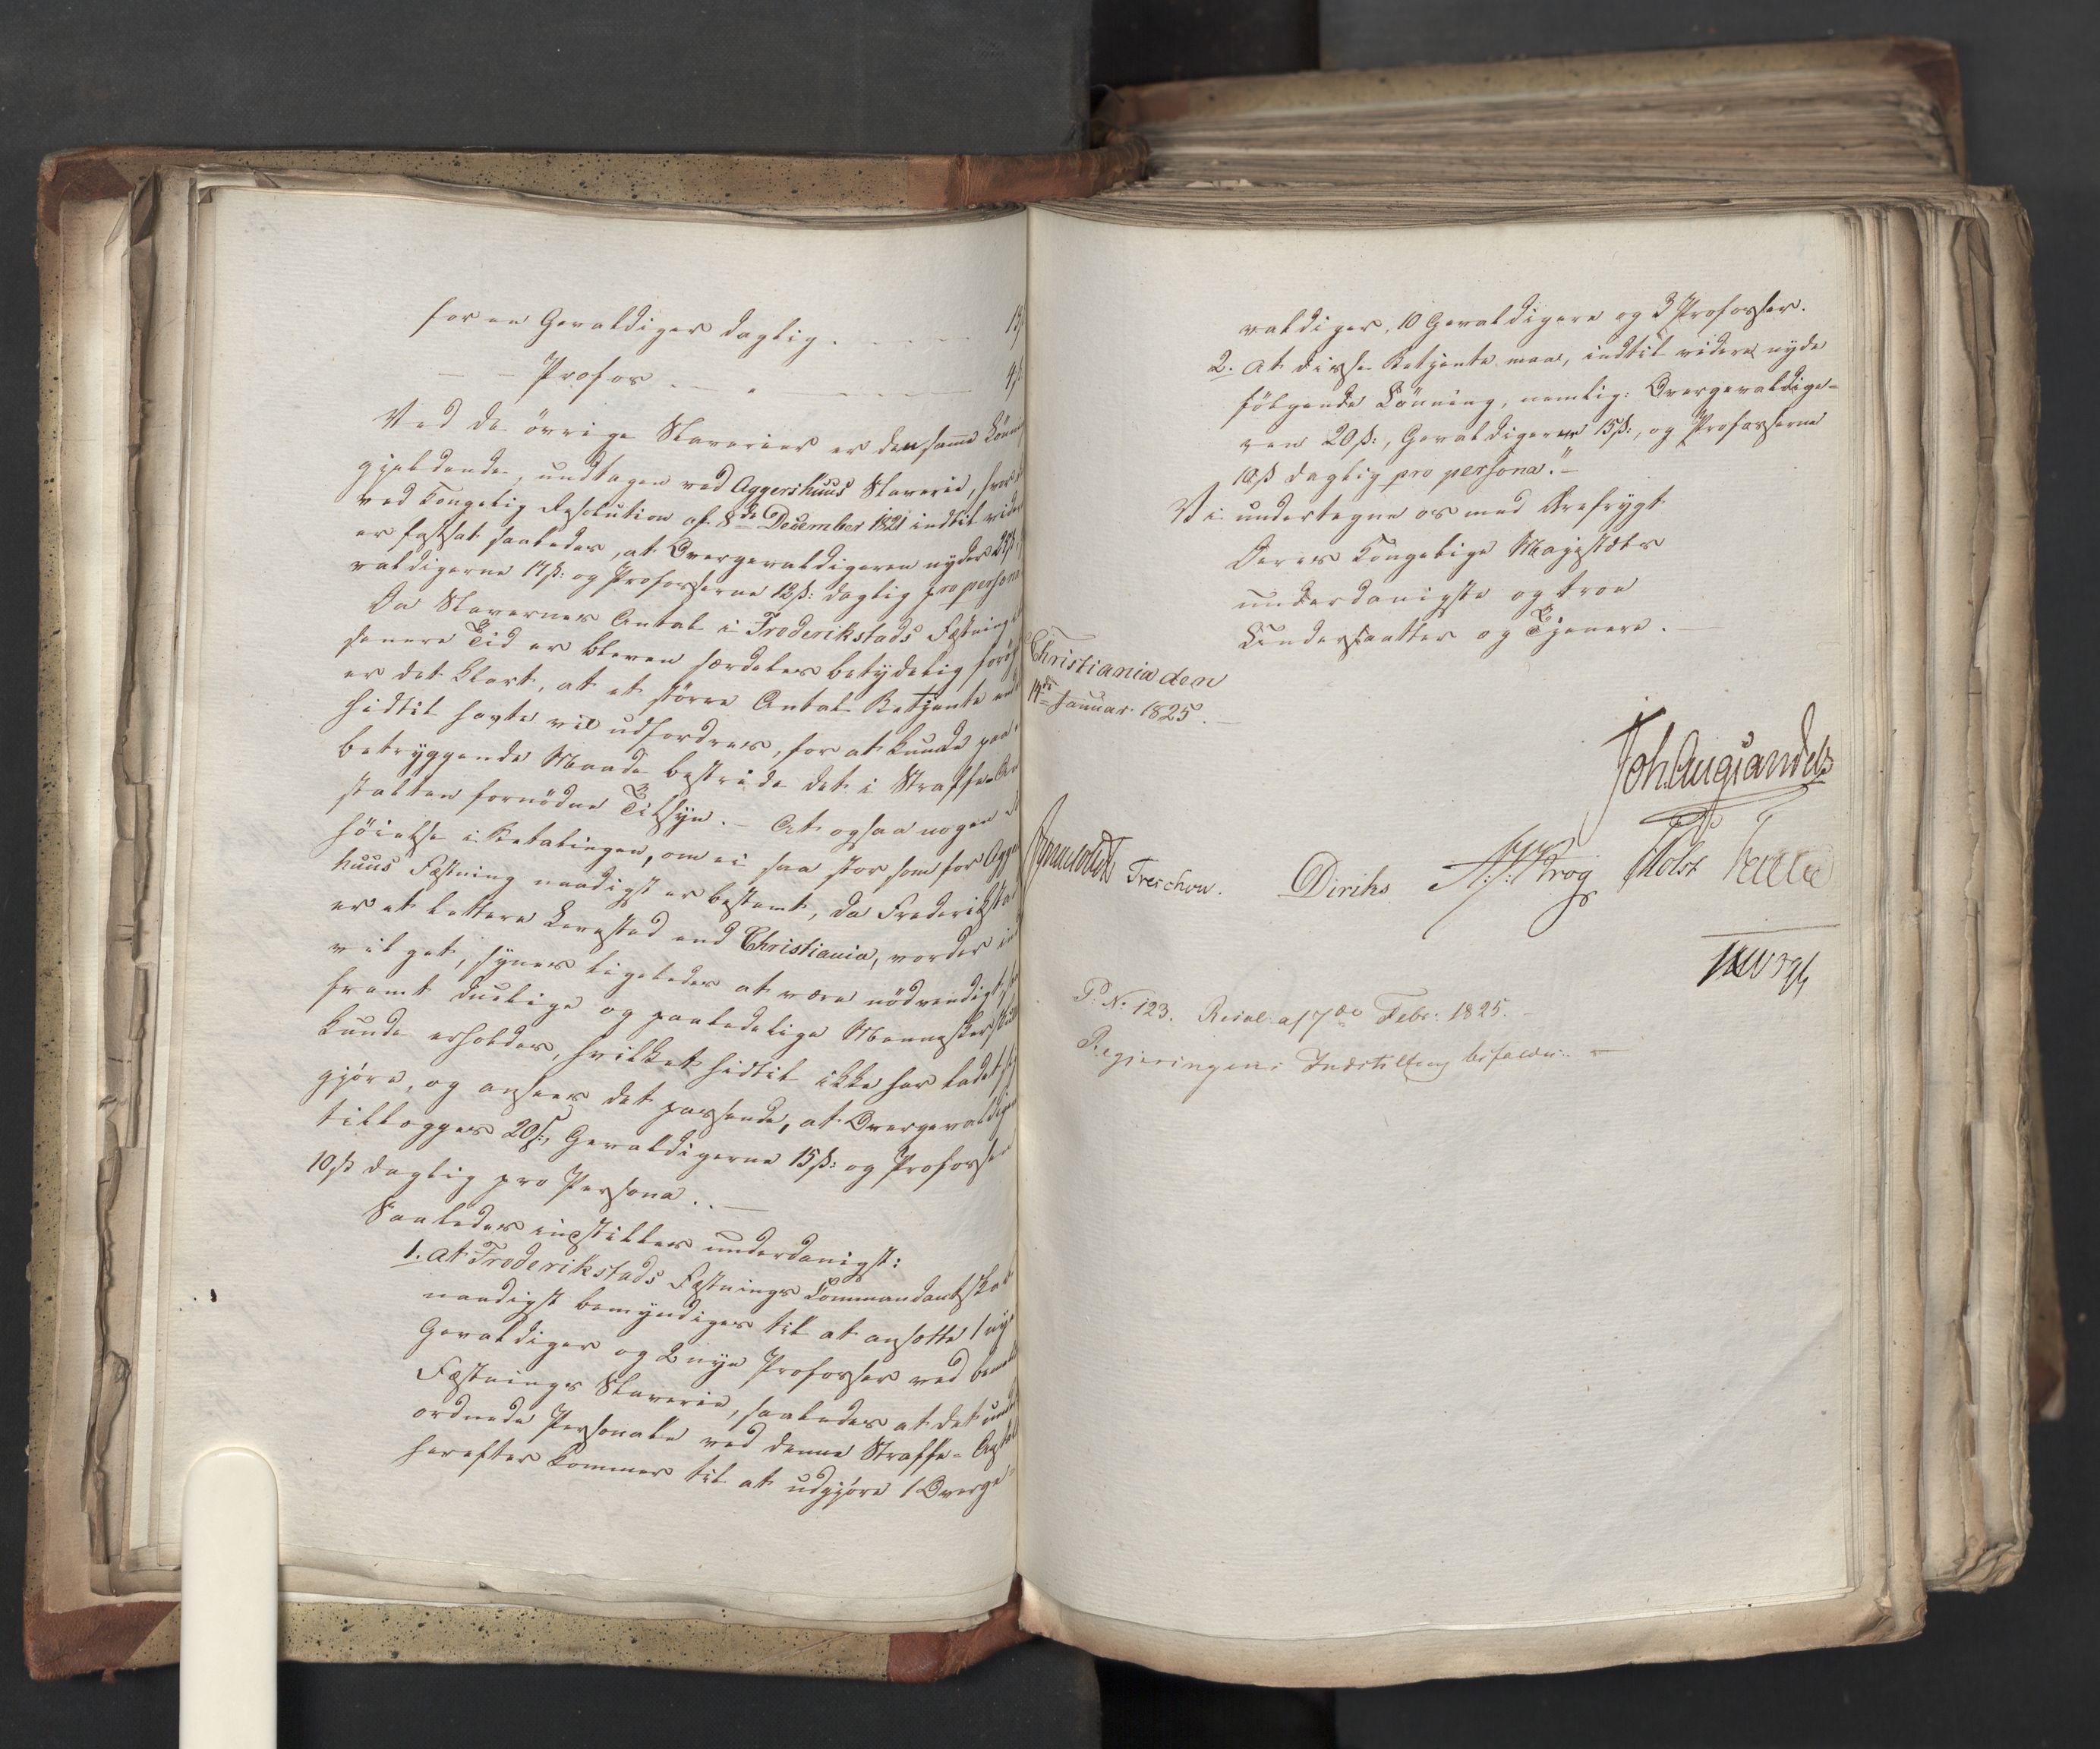 for en Gevaldiger daglig . - - - - 13
— — Profos . — . — — — 4
Ved de övrige Slaverier er den samme Lönni
gjeldende, undtagen ved Aggershuus Slaverie, hvor
ved Kongelig Resolution af 8de December 1821 indtil vide
er fastsat saaledes, at Overgevaldigeren nyder
valdigerne 17 ß: og Profosserne 12 ß: daglig pro person
Da Slavernes Antal i Frederikstads Fæstning i
senere Tid er bleven særdeles betydelig forög
er det klart, at et större Antal Betjente end
hidtil havte vil udfordres, for at kunde paa
betryggende Maade bestride det i Straffe-An
stalten fornödne Tilsyn. — At ogsaa nogen
höielse i Betalingen, om ei saa stor som for Agger
huus Fæstning naadigst er bestemt, da Frederiksta
er et lettere Levested end Christiania, vorder
vilget, synes ligeledes at være nödvendigt
fremt duelige og paalidelige Mennesker skul
kunde erholdes, hvilket hidtil ikke har ladet sig
gjöre, og ansees det passende, at Overgevaldiger
tillægges 20 ß:, Gevaldigerne 15 ß: og Profosser
10 ß daglig pro Persona. . —
Saaledes indstilles underdanigst:
1. at Frederikstads Fæstnings Commandantskab
naadigst bemyndiges til at ansætte 1 ny
Gevaldiger og 2 nye Profosser ved bemel
Fæstnings Slaverie, saaledes at det under
ordnede Personale ved denne Straffe-Anstal
herefter kommer til at udgjöre 1 Overge-
valdiger, 10 Gevaldigere og 3 Profosser.
2. At disse Betjente maae, indtil videre nyde
fölgende Lönning, nemlig: Overgevaldige-
ren 20 ß:, Gevaldigerne 15 ß:, og Profosserne
10 ß daglig pro persona." —
Vi undertegne os med Ærefrygt
Deres Kongelige Majestæts
underdanigste og troe
Undersaatter og Tjenere. —
Christiania den
14de Januar 1825. —
Joh. Aug. Sandels
Sommerhielm Treschow. Diriks A: J: Krog PMolst Fasting
JHVogt
P: No 123. Resol: af 7de Febr: 1825. —
Regjeringens Indstilling bifaldes. —